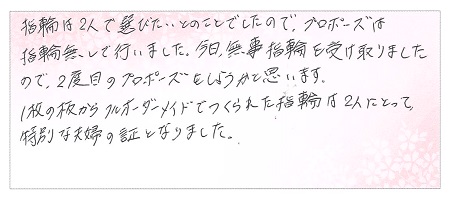 指輪は2人で選びたいとのことでしたので、プロポーズは
指輪無しで行いました。今日、無事指輪を受け取りました
ので、2度目のプロポーズをしようかと思います。
1枚の板からフルオーダーメイドでつくられた指輪は2人にとって、
特別な夫婦の証となりました。